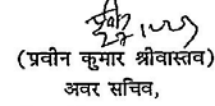 (प्रवीन कुमार श्रीवास्तव)
अवर सचिव,